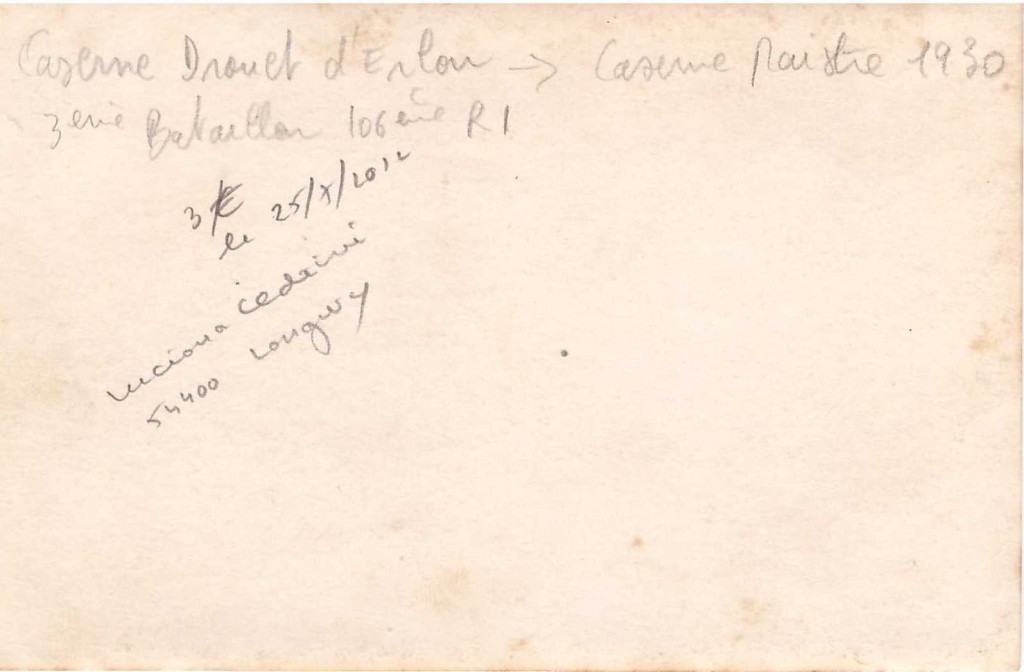 Caserne Drouet d'Erlon -> Caserne Maistre 1930
3eme Bataillon 106eme RI
3 €
le 25/X/2012
Luciana Cedrini
54400 Longwy